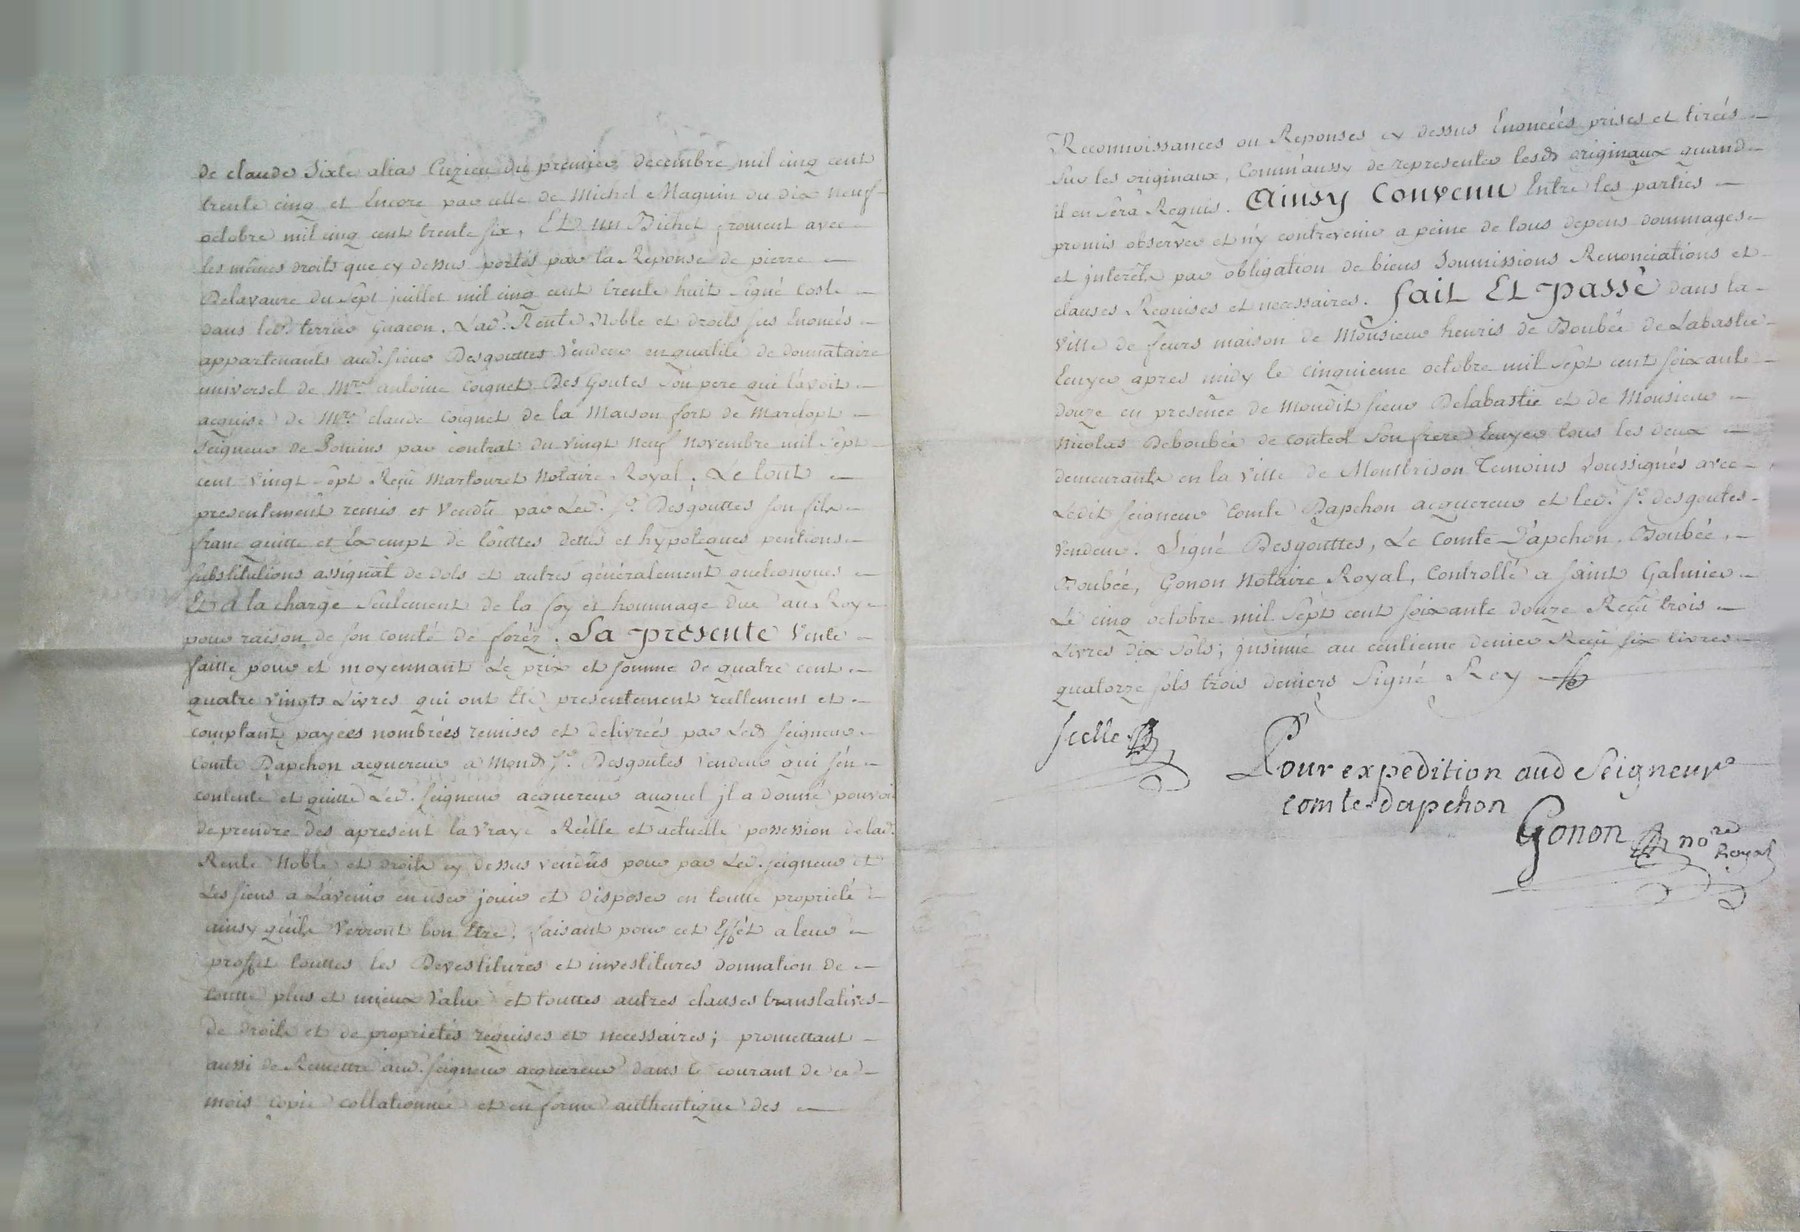 de claude Sixte alias Cuzieu du premier decembre mil cinq cent
trente cinq et Encore par celle de Michel Maguin du dix neuf
octobre mil cinq cent trente six, Et un Bichet froment avec
les mêmes droits que cy dessus portés par la Réponse de pierre
Delavaure du Sept juillet mil cinq cent trente huit Signé Coste
dans led. terrier Guacon. Lad. Rente Noble et droits sus Enoncés
appartenants aud. sieur Desgouttes Vendeur en qualité de donnataire
universel de Mre. antoine Coignet Des Goutes Son pere qui l'avoit
acquise de Mre. claude Coignet de la Maison fort de Marclopt
Seigneur de Pomins par contrat du vingt neuf novembre mil Sept
cent vingt Sept Reçû Martouret Notaire Royal. Le tout
présentement remis et Vendu par Led. Sr. Desgouttes son fils
franc quitte et Exempt de touttes dettes et hypoteques pentions
substitutions assignat de dols et autres généralement quelconques
Et a la charge Seulement de la foy et hommage due au Roy
pour raison de son comté de foréz. La presente Vente
faitte pour et moyennant Le prix et somme de quatre cent
quatre vingts Livres qui ont Eté presentement reellement et
comptant payées nombrées remises et delivrées par Led Seigneur
Comte Dapchon acquereur a Mond Sr. Desgoutes Vendeur qui s'en
contente et quitte Led. Seigneur acquereur auquel jl a donné pouvoir
de prendre dès apresent la vraye Réelle et actuelle possession de lad.
Rente Noble et droits cy dessus vendûs pour par Led. Seigneur et
Les siens a L'avenir en user jouir et Disposer en toutte propriété
ainsy qu'ils Verront bon Etre. faisant pour cet Effét a leur
proffit touttes les Devestitures et investitures donnation de
toutte plus et mieux Value et touttes autres clauses translatives
de droits et de propriétés requises et necessaires; promettant
aussi de Remettre aud. Seigneur acquereur dans le courant de ce
mois copie collationnée et en forme authentique des
Reconnoissances ou Reponses cy dessus Enoncéés prises et tiréés
Sur les originaux, Comm'aussy de representer lesd originaux quand
il en Sera Requis. Ainsy Convenu Entre les parties
promis observer et n'y contrevenir a peine de tous depens dommages
et jnterêts par obligation de biens Soumissions Renonciations et
clauses Requises et necessaires. fait Et passé dans la
Ville de feurs maison de Monsieur henris de Boubée de Labastie
Ecuyer apres midy le cinquieme octobre mil Sept cent soixante
douze en presence de Mondit sieur Delabastie et de Monsieur
Nicolas Deboubée de Son frere Ecuyer tous les deux
demeurants en la Ville de Montbrison Temoins Soussignés avec
Ledit Seigneur Comte Dapchon acquereur et led. Sr. desgoutes
vendeur. Signé Desgouttes, Le Comte D'apchon, Boubée,
Boubée, Gonon Notaire Royal, Controllé a Saint Galmier
Le cinq octobre mil Sept cent soixante douze Reçû trois
Livres dix Sols; jnsinué au centieme denier Reçû six livres
quatorze sols trois deniers Signé Rey
scellé
Pour expedition aud Seigneur
comte dapchon
Gonon nore
Royal